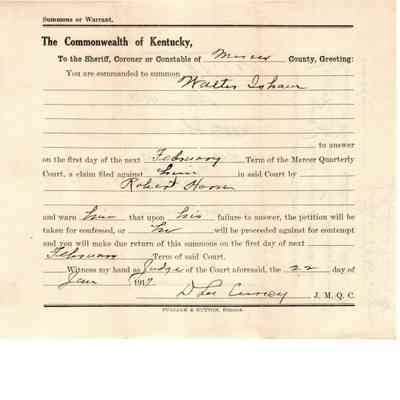 Summons or Warrant.
The Commonwealth of Kentucky,
To the Sheriff, Coroner or Constable of Mercer County, Greeting:
You are commanded to summon
Walter Isham
to answer
on the first day of the next February Term of the Mercer Quarterly
Court, a claim filed against him in said Court by
Robert
and warn him that upon his failure to answer, the petition will be
taken for confessed, or he will be proceeded against for contempt
and you will make due return of this summons on the first day of next
February Term of said Court.
Witness my hand as Judge of the Court aforesaid, the 22 day of
Jan 1917
D Lee J. M. Q. C.